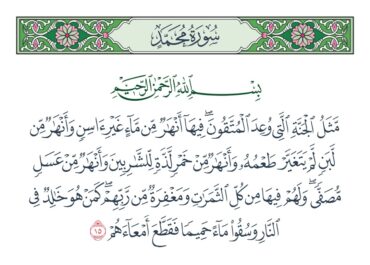 سُورَةُ مُحَمَّدٍ
بِسْمِ اللَّهِ الرَّحْمَٰنِ الرَّحِيمِ
مَّثَلُ الْجَنَّةِ الَّتِي وُعِدَ الْمُتَّقُونَ ۖ فِيهَا أَنْهَارٌ مِّن مَّاءٍ غَيْرِ آسِنٍ وَأَنْهَارٌ مِّن
لَّبَنٍ لَّمْ يَتَغَيَّرْ طَعْمُهُ وَأَنْهَارٌ مِّنْ خَمْرٍ لَّذَّةٍ لِّلشَّارِبِينَ وَأَنْهَارٌ مِّنْ عَسَلٍ
مُّصَفًّى ۖ وَلَهُمْ فِيهَا مِن كُلِّ الثَّمَرَاتِ وَمَغْفِرَةٌ مِّن رَّبِّهِمْ ۖ كَمَنْ هُوَ خَالِدٌ فِي
النَّارِ وَسُقُوا مَاءً حَمِيمًا فَقَطَّعَ أَمْعَاءَهُمْ ١٥